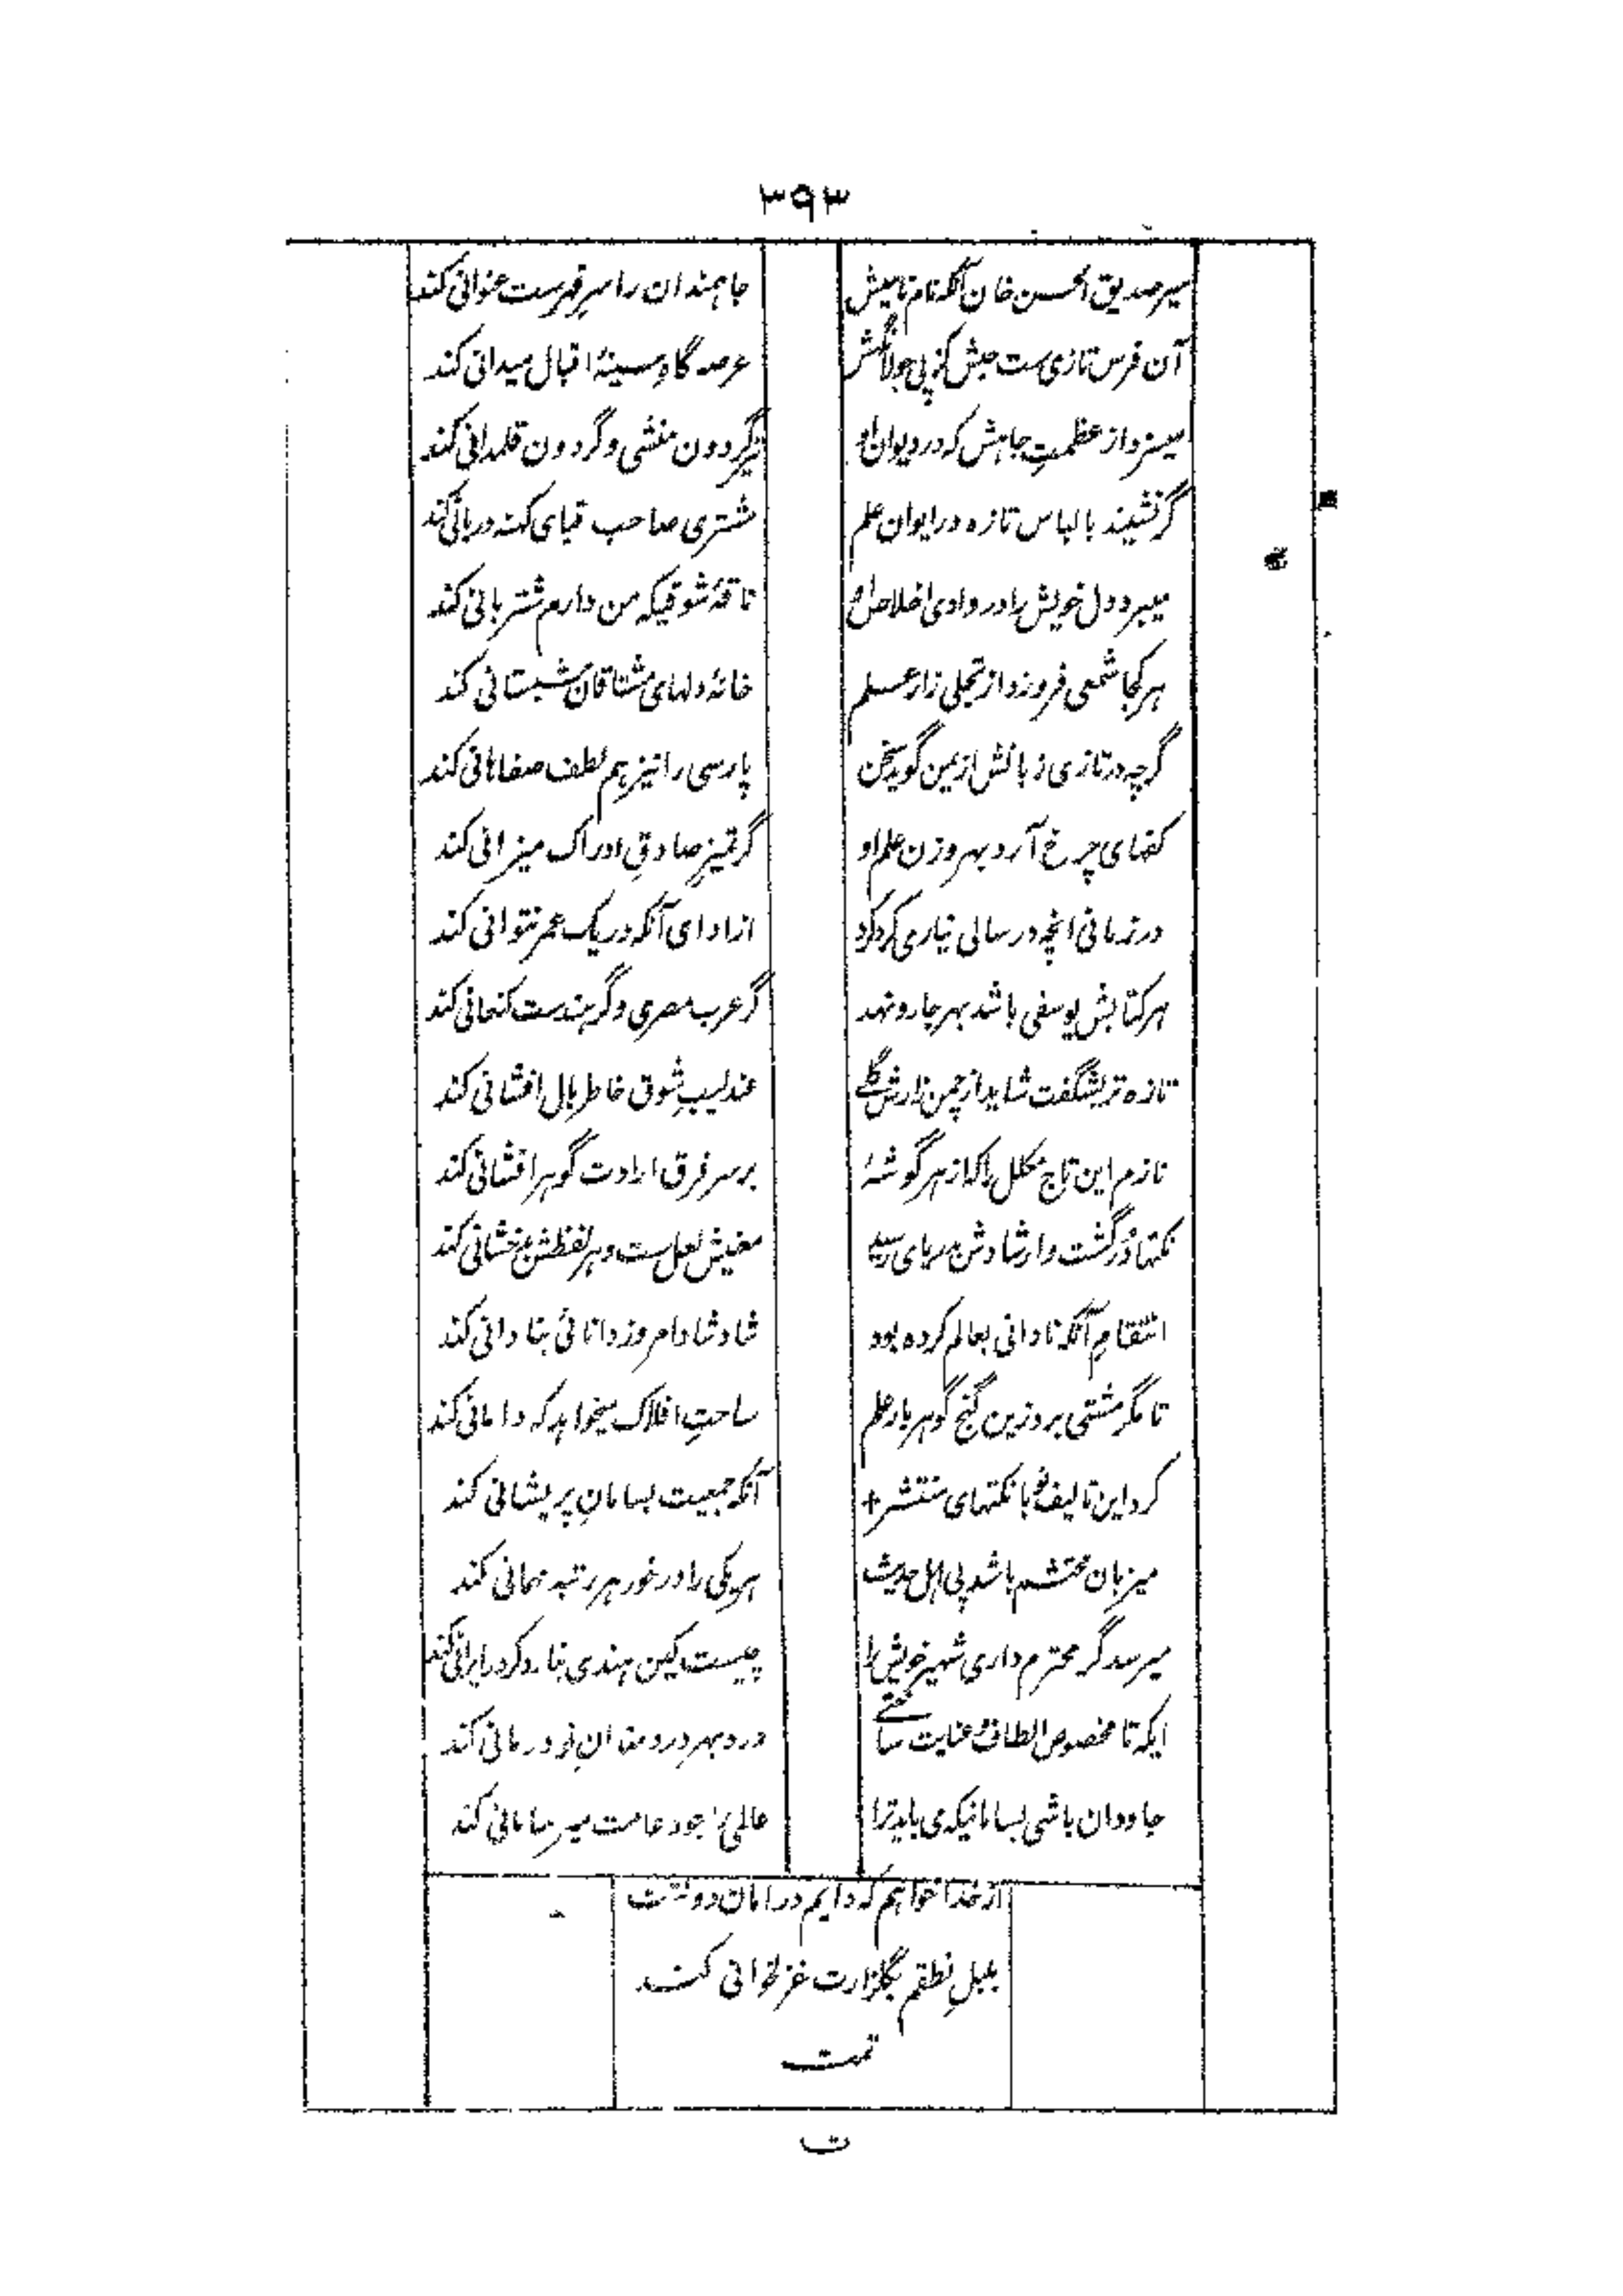 ۳۹۳
میر صدیق الحسن خان آنکه نام نامیش
جاہمندان را سر فہرست عنوانی کند
آن فرس تازی ست جیش کز پی جولانگہش
عرصہ گاہ سینۂ اقبال میدانی کند
میسزد از عظمتِ جاہش کہ در دیوان او
گردون منشی و گردون قلمدانی کند
گر نشیند با لباس تازہ در ایوان علم
مشتری صاحب قبای کہنہ دربانی کند
میبرد دل خویش را در وادی اخلاص او
ناقۂ شوقیکہ من دارم شتربانی کند
ہر کجا شمعی فروزد از تجلی زار علم
خانۂ دلہای مشتاقان شبستانی کند
گرچہ در تازی زبانش از یمن گوید سخن
پارسی را نیز ہم لطف صفاہانی کند
کفہای چرخ آرد بہر وزن علم او
گر تمیزِ صادقِ ادراک میزانی کند
در زمانی انچہ در سالی نیاری کرد کرد
از ادای آنکہ در یک عمر نتوانی کند
ہر کتابش یوسفی باشد بہر جا رو نہد
گر عرب مصری وگر ہندست کنعانی کند
تازہ تر بشگفت شاید از چمن زارش گلے
عندلیبِ شوق خاطر بال افشانی کند
نازم این تاج مکلل را کہ از ہر گوشۂ
بر سر فرق ارادت گوہر افشانی کند
نکتہا دُر گشت و ارشادش بدریای رسید
معنیش لعل ست و ہر لفظش بدخشانی کند
انتقامِ آنکہ نادانی بعالم کردہ بود
شاد شاد امروز دانائی بنادانی کند
تا مگر مشتی برد زین گنج گوہر بار علم
ساحتِ افلاک میخواہد کہ دامانی کند
کرد این تالیف نو با نکتہای منتشر +
آنکہ جمعیت بسامانِ پریشانی کند
میزبان محتشم باشد پی اہل حدیث
ہریکی را در خور ہر رتبہ مہمانی کند
میرسد گر محترم داری شہیر خویش را
چیست کین ہندی بنا رو کرد ایرانی کند
ایکہ تا مخصوص الطاف و عنایت ساختے
درد بہر دردمندانِ تو درمانی کند
جاودان باشی بسامانیکہ می باید ترا
عالمی جود عامت میر سامانی کند
از خدا خواہم کہ دایم در امان دولتت
بلبلِ نطقم بگلزارت غزلخوانی کند
تمت
ت